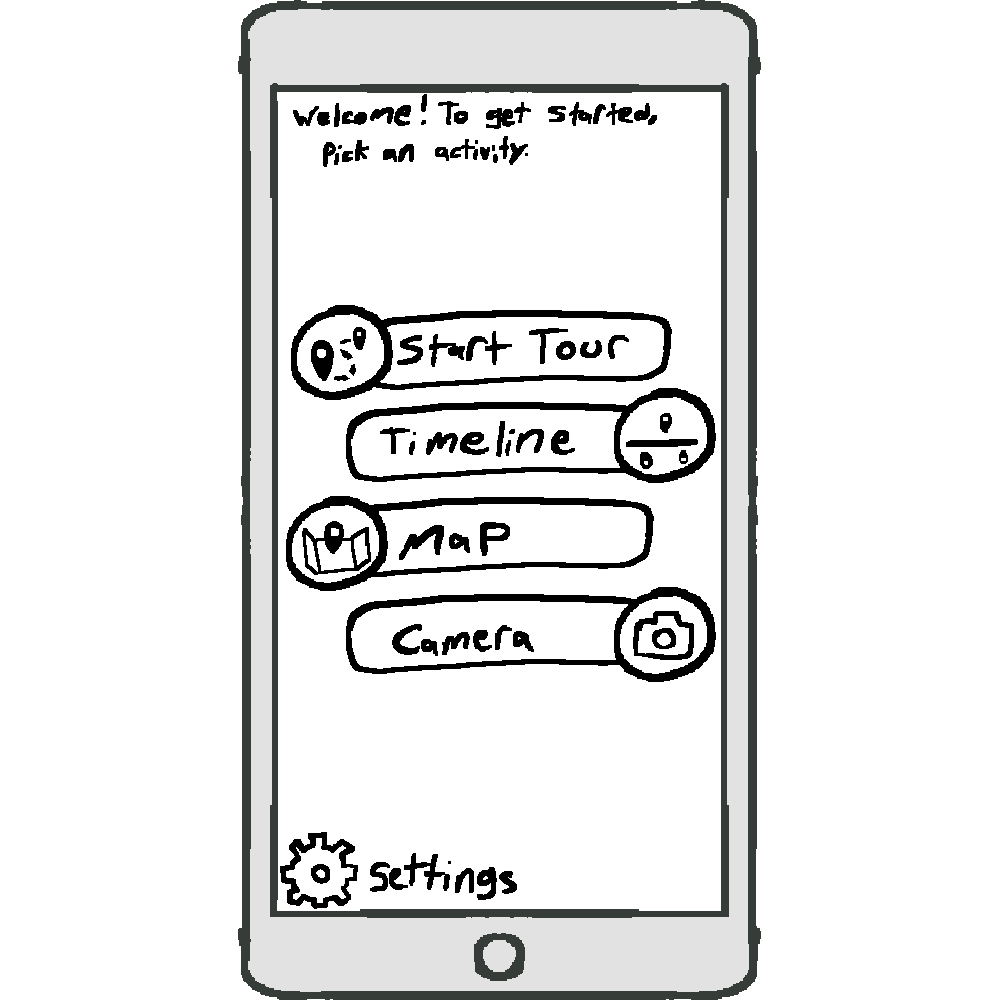 Welcome! To get started,
Pick an activity.
Start Tour
Timeline
Map
Camera
Settings